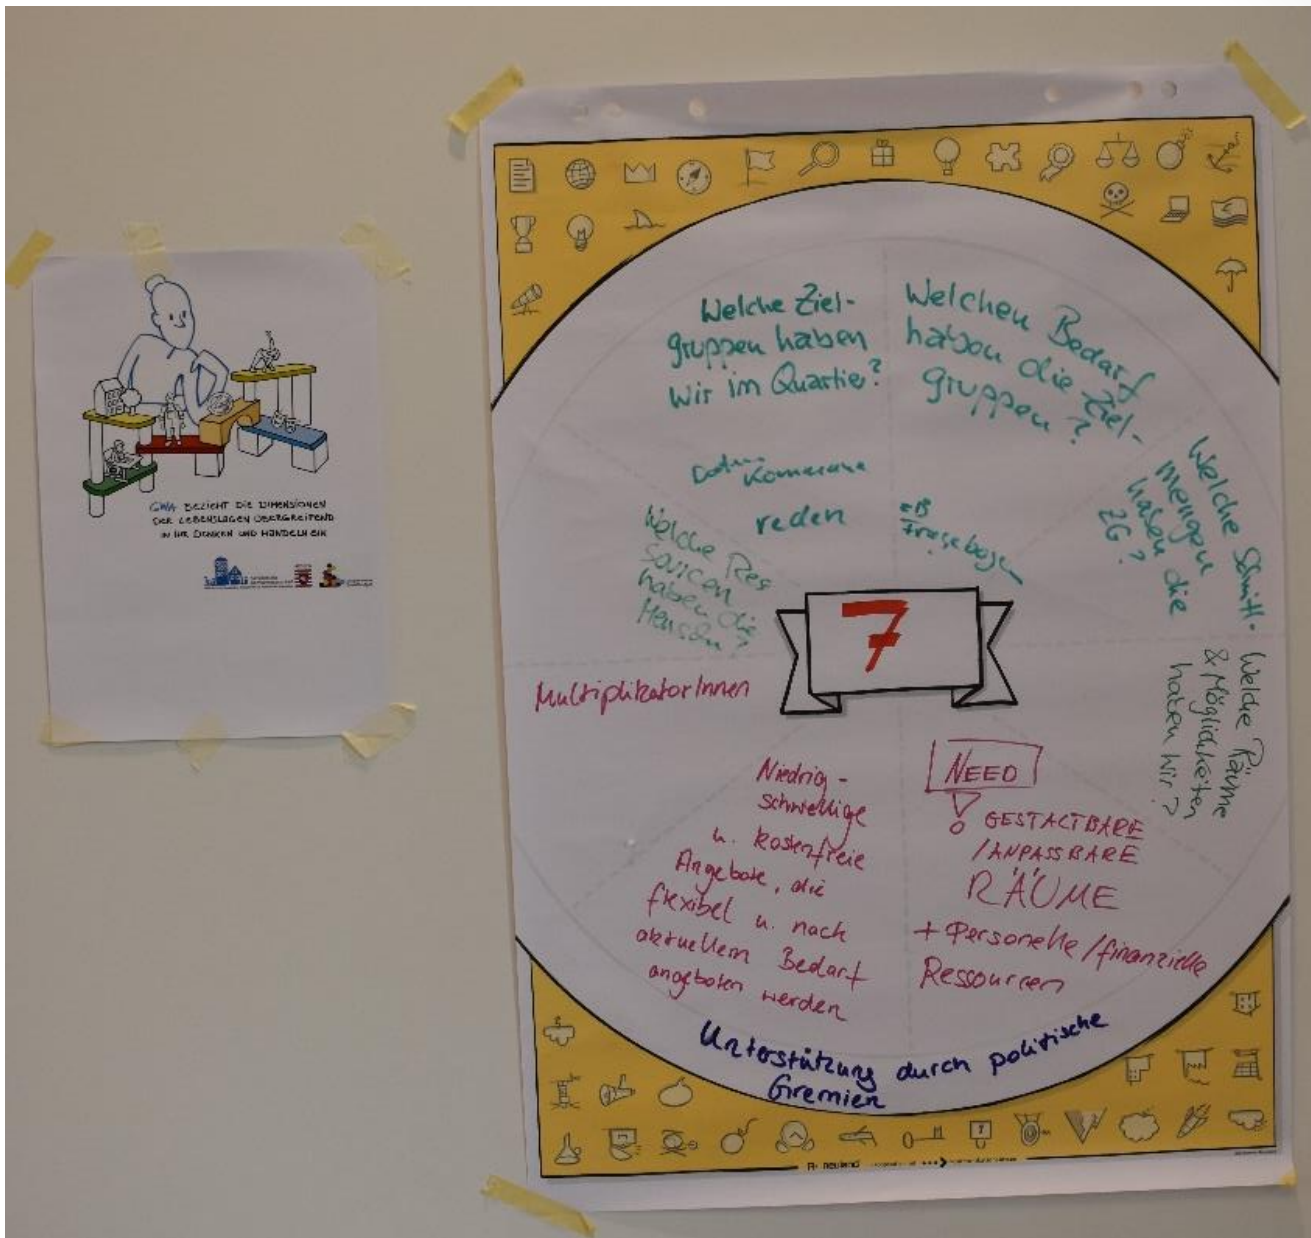 GWA BEZIEHT DIE DIMENSIONEN
DER LEBENSLAGEN ÜBERGREIFEND
IN IHR DENKEN UND HANDELN EIN
Welche Ziel-
gruppen haben
wir im Quartier?
Welchen Bedarf
haben die Ziel-
gruppen?
Welche Schnitt-
mengen
haben die
ZG?
Welche Räume
& Möglichkeiten
haben wir?
Kommune
reden
zB
Fragebogen
Welche Res
sourcen
haben die
Menschen?
7
MultiplikatorInnen
Niedrig-
schwellige
u. kostenfreie
Angebote, die
flexibel u. nach
aktuellem Bedarf
angeboten werden
NEED
GESTALTBARE
/ANPASSBARE
RÄUME
+ Personelle/finanzielle
Ressourcen
Unterstützung durch politische
Gremien
neuland